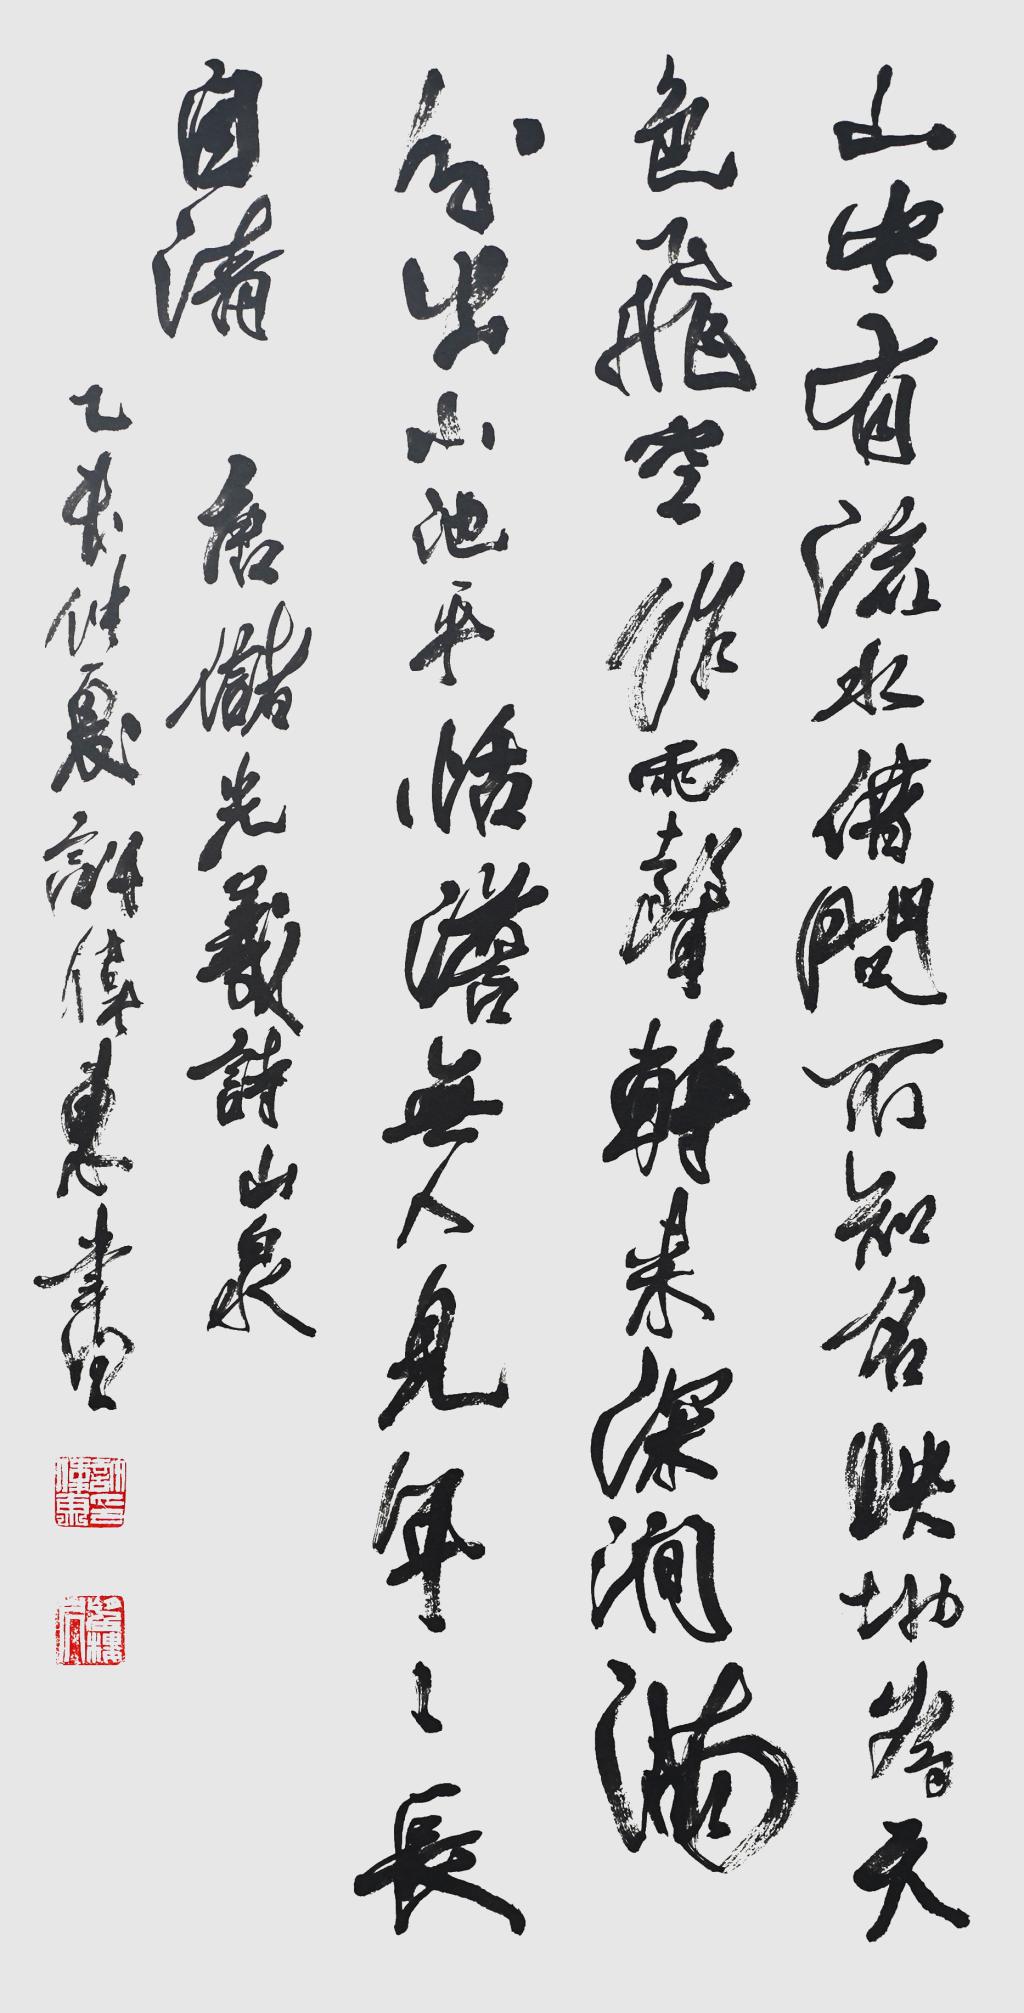 山中有流水借問不知名映地為天
色飛空作雨聲轉來深澗滿
分出小池平恬澹無人見年々長
自清 唐儲光羲詩山泉
乙未仲夏許偉東書
許印偉東